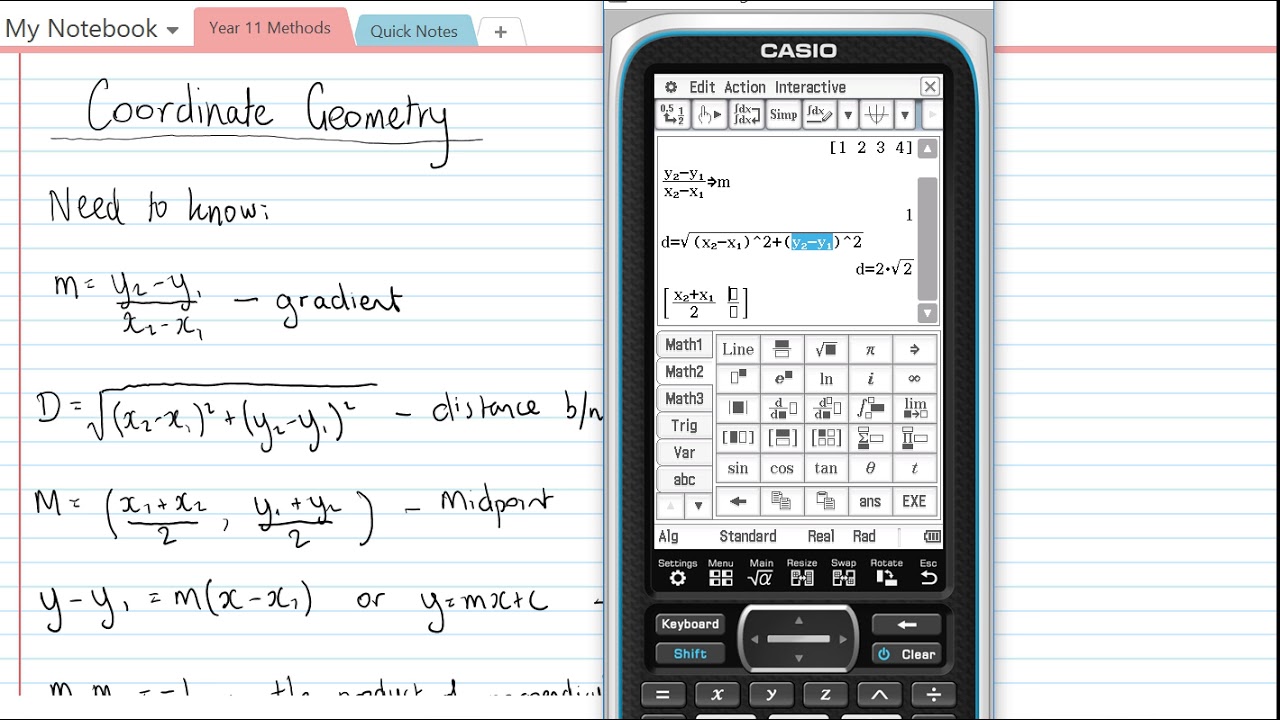 My Notebook
Year 11 Methods
Quick Notes
+
Coordinate Geometry
Need to know:
m = y₂-y / x₂-x - gradient
D = √(x₂-x) + (y₂-y₁) - distance b/n
M = (x₁+x / 2, y₂+y / 2) - Midpo
y-y₁ = m(x-x₁) or y=mx+c -
CASIO
Edit Action Interactive
0.5 1/2 ∫dx Simp ∫dx
[1 2 3 4]
y₂-y₁ / x₂-x₁ ➔m
1
d=√(x₂-x₁)^2+(y₂-y₁)^2
d=2·√2
[x₂+x / 2 □/□]
Math1 Line √■ π ➔
Math2 ■□ e■ ln i ∞
Math3 |■| d/d■□ d□/d■□ ∫□■ lim
Trig [■□] Σ□ Π□
Var sin cos tan θ t
abc
← ans EXE
Alg Standard Real Rad
Settings Menu Main Resize Swap Rotate Esc
√α
Keyboard ←
Shift Clear
= x y z ^ ÷